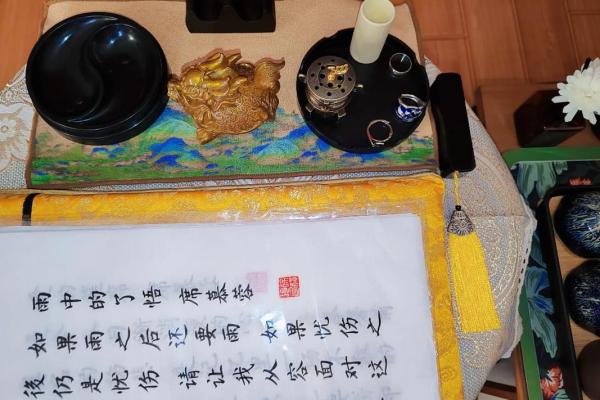 雨中的了悟 席慕蓉
如果雨之后还要雨 如果忧伤之
後仍是忧伤 请让我从容面对这